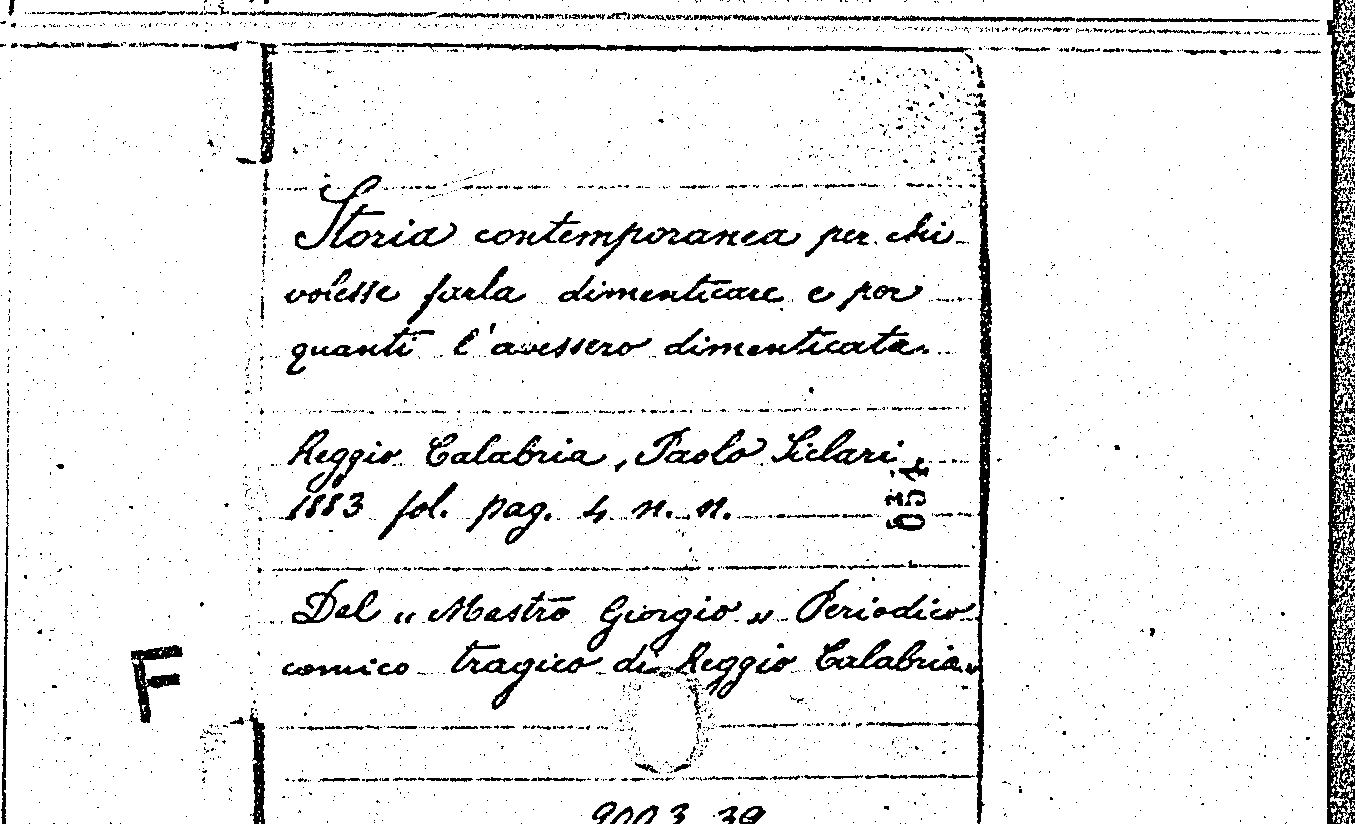 Storia contemporanea per chi
volesse farla dimenticare e per
quanti l'avessero dimenticata.
Reggio Calabria, Paolo Siclari
1883 fol. pag. 4 n. n.
Del „ Mastro Giorgio „ Periodico
comico tragico di Reggio Calabria.
F